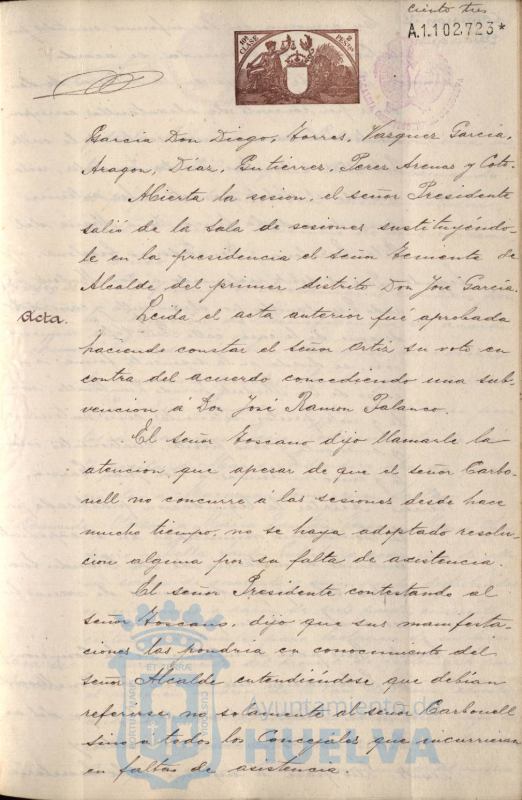 ciento tres
A.1.102.723*
10ª CLASE
2 PESETAS
Garcia Don Diogo, Torres, Vazquez Garcia,
Aragon, Diaz, Gutierrez, Perez Arenas y Coto.
Abierta la sesion, el señor Presidente
salió de la Sala de sesiones sustituyéndo-
le en la presidencia el señor Temente de
Alcalde del primer distrito Don José García.
Acta.
Leida el acta anterior fué aprobada
haciendo constar el señor Ortiz su voto en
contra del acuerdo concediendo una sub-
vencion á Don José Ramon Palanco.
El señor Toscano dijo llamarle la
atencion que apesar de que el señor Carbo-
nell no concurre á las sesiones desde hace
mucho tiempo, no se haya adoptado resolu-
cion alguna por su falta de asistencia.
El señor Presidente contestando al
señor Toscano, dijo que sus manifesta-
ciones las pondria en conocimiento del
señor Alcalde entendiéndose que debían
referirse no solamente al señor Carbonell
sino a todos los Concejales que incurrieran
en faltas de asistencia.
Ayuntamiento de
HUELVA